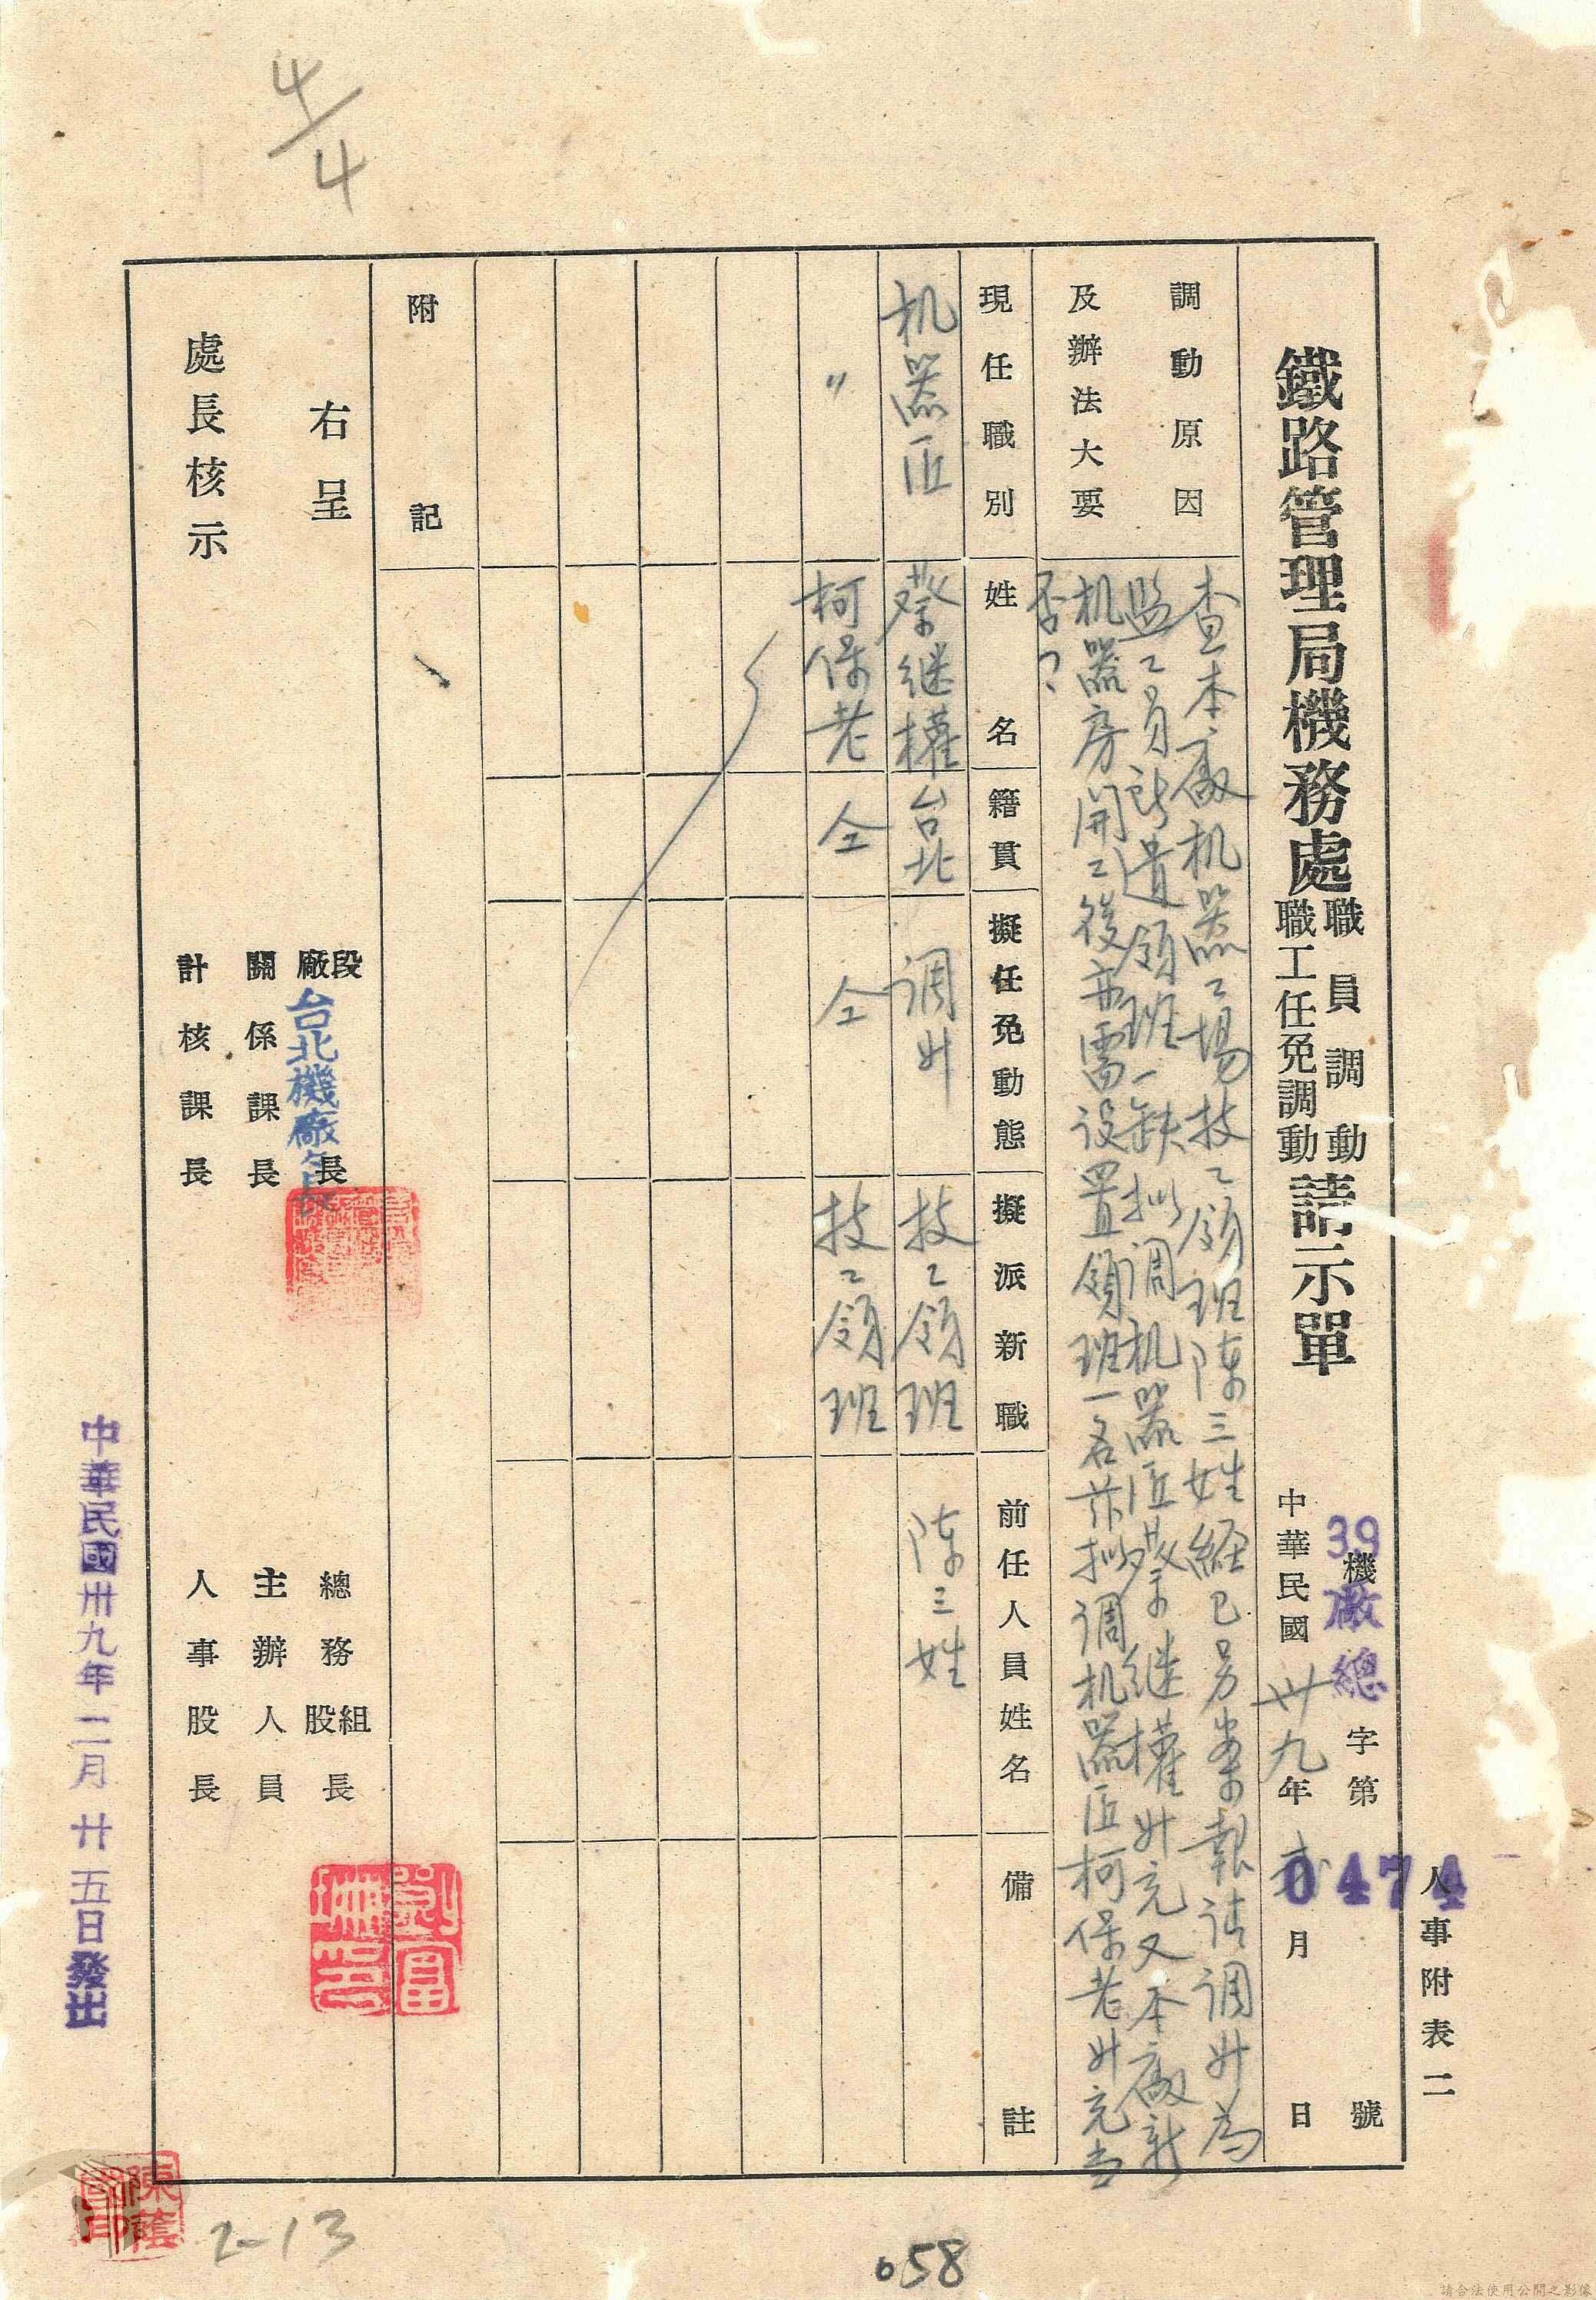 4/4
人事附表二
39機廠總字第0474號
鐵路管理局機務處職員調動職工任免調動請示單
中華民國卅九年 月 日
調動原因及辦法大要
查本廠机器工場技工領班陳三姓経已另案報請調升為
監工員所遺領班一缺拟调机器匠蔡継權升充又本廠新
机器房開工後亦需设置領班一名茲拟调机器匠柯保老升充当
否?
現任職別 姓名 籍貫 擬任免動態 擬派新職 前任人員姓名 備註
机器匠 蔡继權 台北 调升 技工領班 陳三姓
〃 柯保老 仝 仝 技工領班
附記
右呈
處長核示
段廠長 台北機廠長
關係課長
計核課長
總務股組長
主辦人員
人事股長
中華民國卅九年二月廿五日發出
2-13
058
請合法使用公開之影像